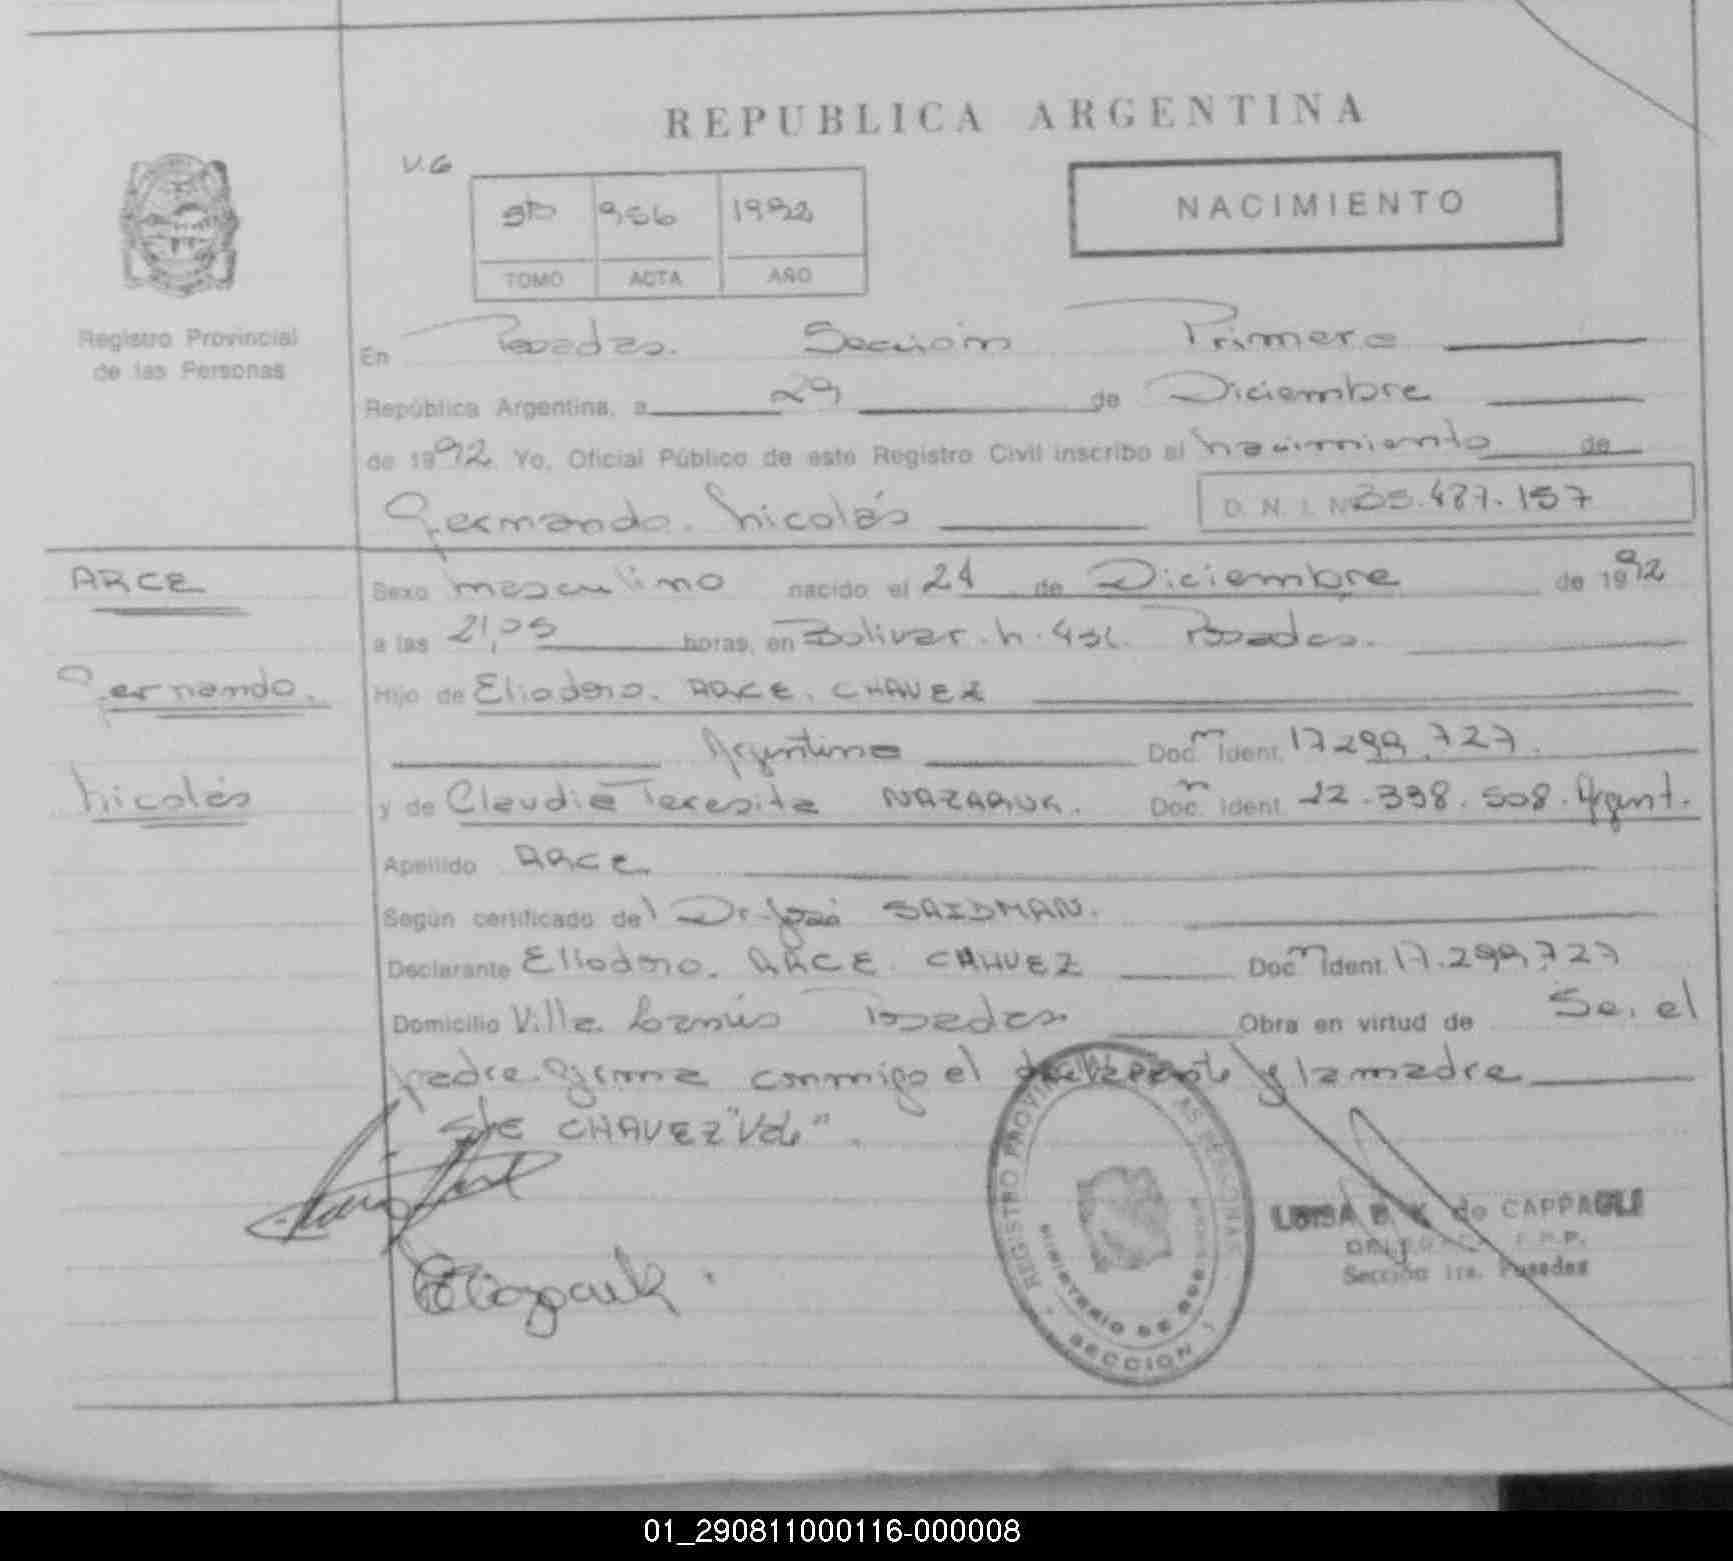 REPUBLICA ARGENTINA
V.G
5to 956 1992
TOMO ACTA AÑO
NACIMIENTO
Registro Provincial
de las Personas
En Posadas. Sección Primera
República Argentina, a 29 de Diciembre
de 1992. Yo, Oficial Público de este Registro Civil inscribo el nacimiento de
Germando. Nicolás
D. N. I. Nº 35.487.157
ARCE
Germando.
Nicolás
Sexo masculino nacido el 24 de Diciembre de 1992
a las 21,05 horas, en Bolivar. n. Posadas.
Hijo de Eliodoro. ARCE. CHAVEZ
Argentino Doc. Ident. 17.299.727.
y de Claudia Teresita NAZARUK. Doc. Ident. 22.398.508. Argent.
Apellido ARCE
Según certificado del Dr. José SAIDMAN.
Declarante Eliodoro. ARCE. CHAVEZ Doc. Ident. 17.299.727
Domicilio Villa Lanús Posadas Obra en virtud de Se. el
padre. Firma conmigo el declarante y la madre
S/E CHAVEZ "Vale".
REGISTRO PROVINCIAL DE LAS PERSONAS
MINISTERIO DE GOBIERNO
SECCION 1
LUISA B. K. de CAPPAGLI
Sección 1ra. Posadas
01_290811000116-000008